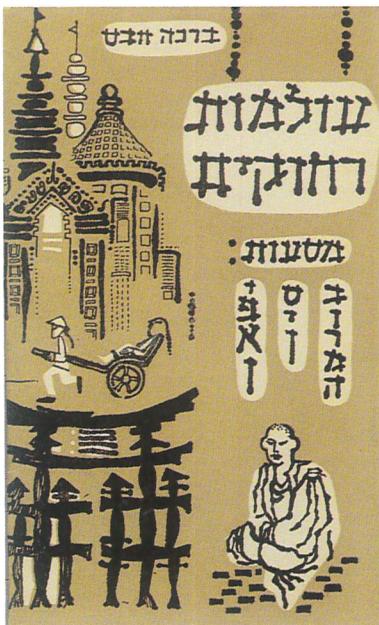 ברכה חבס
עולמות
רחוקים
מסעות:
בורמה
סין
יפאן